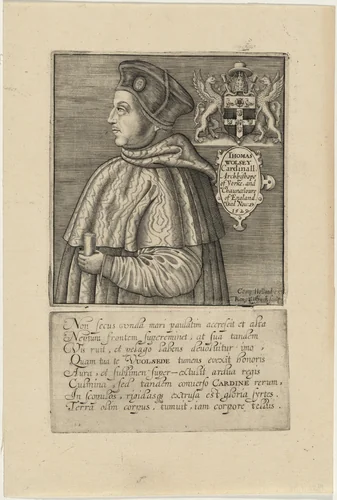 THOMAS
WOLSEY
Cardinall
Archbyshope
of Yorke, and
Chauncelour
of England
Obiit Novem
Comp: Holland
Non secus vnda mari paulatim accrescit et alta
Neptuni frontem supereminet, at sua tandem
Vis ruit, et pelago labens deuoluitur imo
Quam tua te VVOLSEDE tumens evexit honoris
Aura, et sublimem super-extulit ardua regis
Culmina, sed tandem converso CARDINE rerum,
In scopulos, rigidasq extrusa est gloria syrtes.
Terra olim cornus, tumuit, iam corpore tellus.